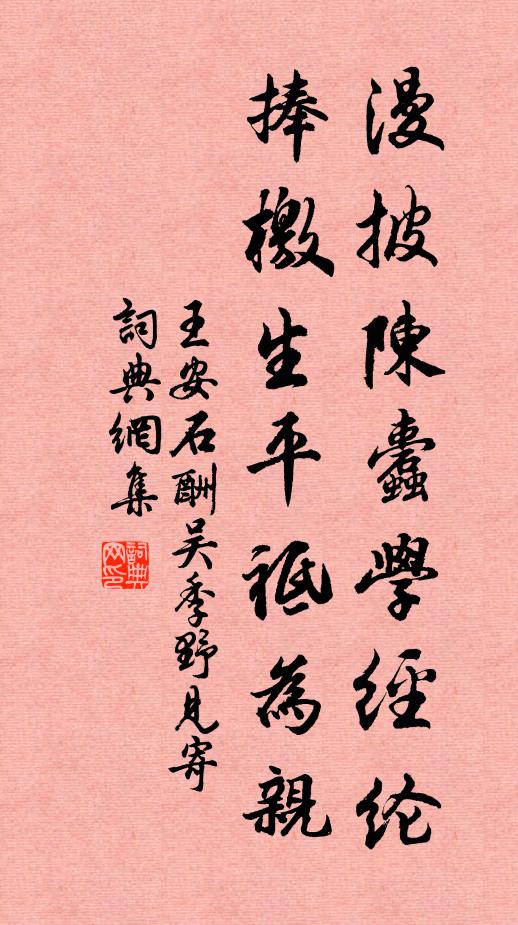 漫披陳蠹學經纶
捧檄生平祗為親
王安石酬吴季野見寄
詞典網集
詞典网印